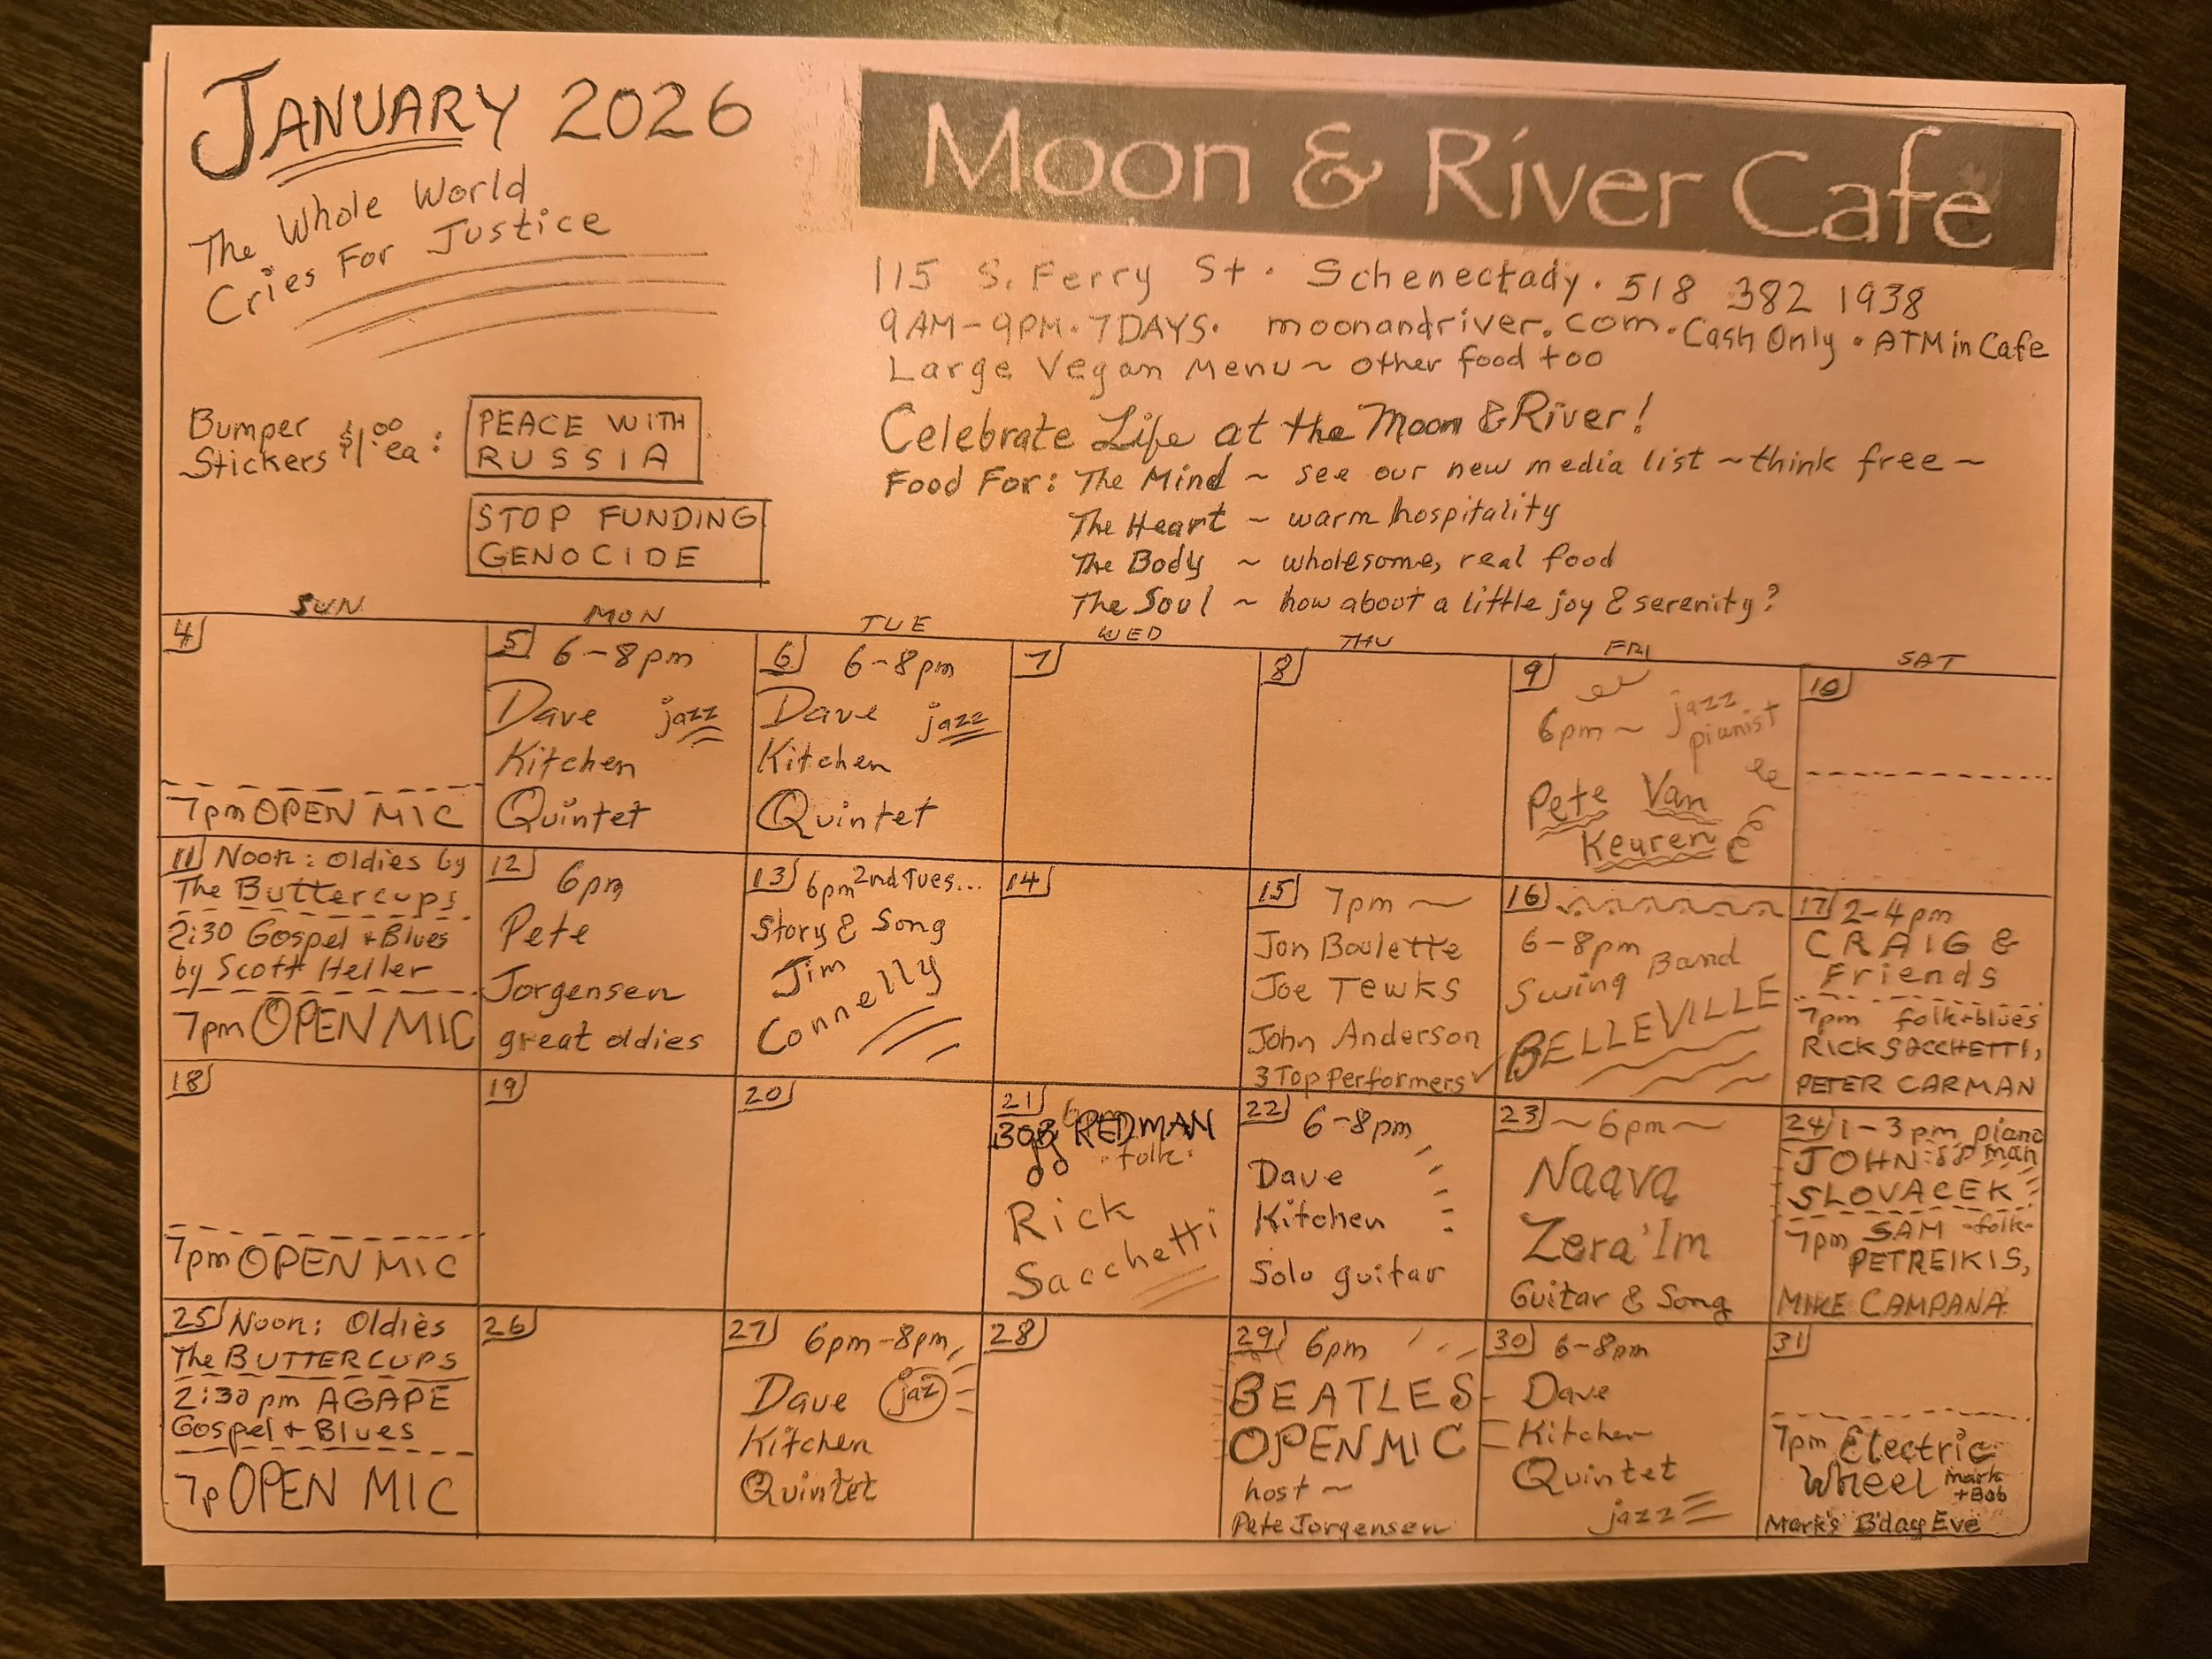 JANUARY 2026
The Whole World
Cries For Justice
Bumper
Stickers $1.00 ea:
PEACE WITH
RUSSIA
STOP FUNDING
GENOCIDE
Moon & River Cafe
115 S. Ferry St. Schenectady. 518 382 1938
9AM-9PM. 7DAYS. moonandriver.com. Cash Only. ATM in Cafe
Large Vegan Menu ~ other food too
Celebrate Life at the Moon & River!
Food For: The Mind ~ see our new media list ~ think free ~
The Heart ~ warm hospitality
The Body ~ wholesome, real food
The Soul ~ how about a little joy & serenity?
SUN MON TUE WED THU FRI SAT
4
7pm OPEN MIC
5 6-8pm
Dave jazz
Kitchen
Quintet
6 6-8pm
Dave jazz
Kitchen
Quintet
7
8
9
6pm ~ jazz
pianist
Pete Van
Keuren
10
11 Noon: Oldies by
The Buttercups
2:30 Gospel + Blues
by Scott Heller
7pm OPEN MIC
12 6pm
Pete
Jorgensen
great oldies
13 6pm 2nd Tues...
Story & Song
Jim
Connelly
14
15 7pm ~
Jon Boulette
Joe Tewks
John Anderson
3 Top Performers
16
6-8pm
Swing Band
BELLEVILLE
17 2-4pm
CRAIG &
Friends
7pm folk+blues
RICK SACCHETTI,
PETER CARMAN
18
7pm OPEN MIC
19
20
21
BOB REDMAN
folk
Rick
Sacchetti
22 6-8pm
Dave
Kitchen
Solo guitar
23 ~ 6pm ~
Naava
Zera'Im
Guitar & Song
24 1-3pm piano
JOHN man
SLOVACEK
7pm SAM -folk-
PETREIKIS,
MIKE CAMPANA
25 Noon: Oldies
The BUTTERCUPS
2:30pm AGAPE
Gospel + Blues
7p OPEN MIC
26
27 6pm-8pm
Dave jaz
Kitchen
Quintet
28
29 6pm
BEATLES
OPEN MIC
host ~
Pete Jorgensen
30 6-8pm
Dave
Kitchen
Quintet
jazz
31
7pm Electric
Wheel Mark
+Bob
Mark's B'day Eve